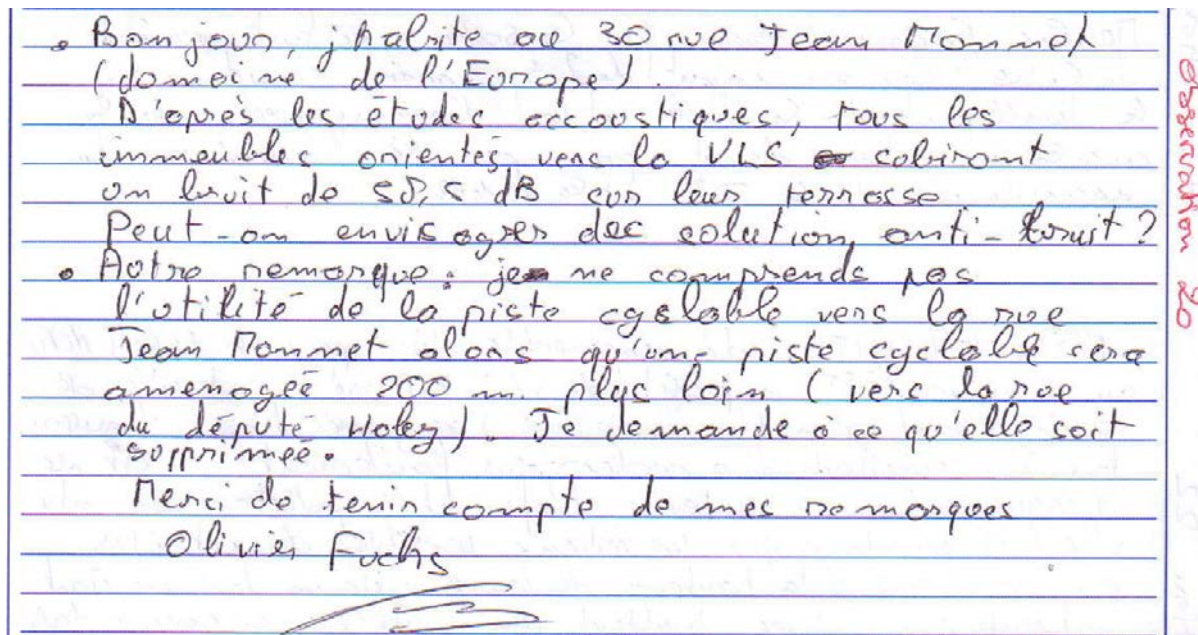 • Bonjour, j'habite au 30 rue Jean Monnet
(domaine de l'Europe).
D'après les études accoustiques, tous les
immeubles orientés vers la VLS subiront
un bruit de 58,5 dB sur leur terrasse
Peut-on envisager des solution, anti-bruit ?
• Autre remarque : je ne comprends pas
l'utilité de la piste cyclable vers la rue
Jean Monnet alors qu'une piste cyclable sera
amenagée 200 m. plus loin (vers la rue
du député Holey). Je demande à ce qu'elle soit
supprimée.
Merci de tenir compte de mes remarques
Olivier Fuchs
Observation 20